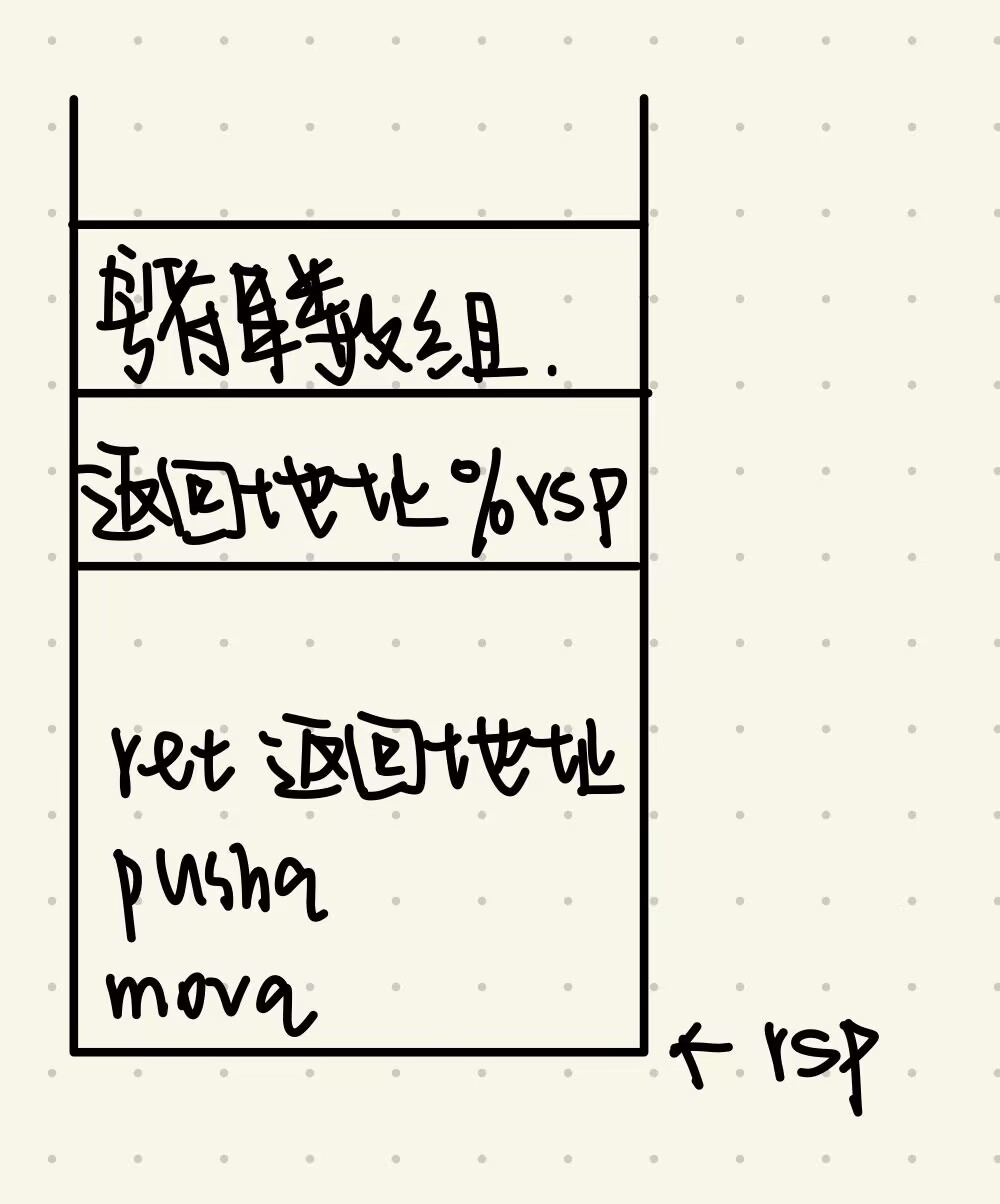 数组.
返回地址 %rsp
ret 返回地址
pushq
movq
← rsp